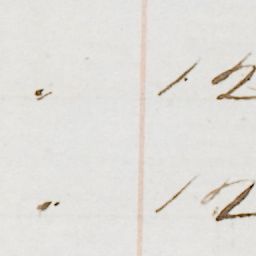 " 12
" 12